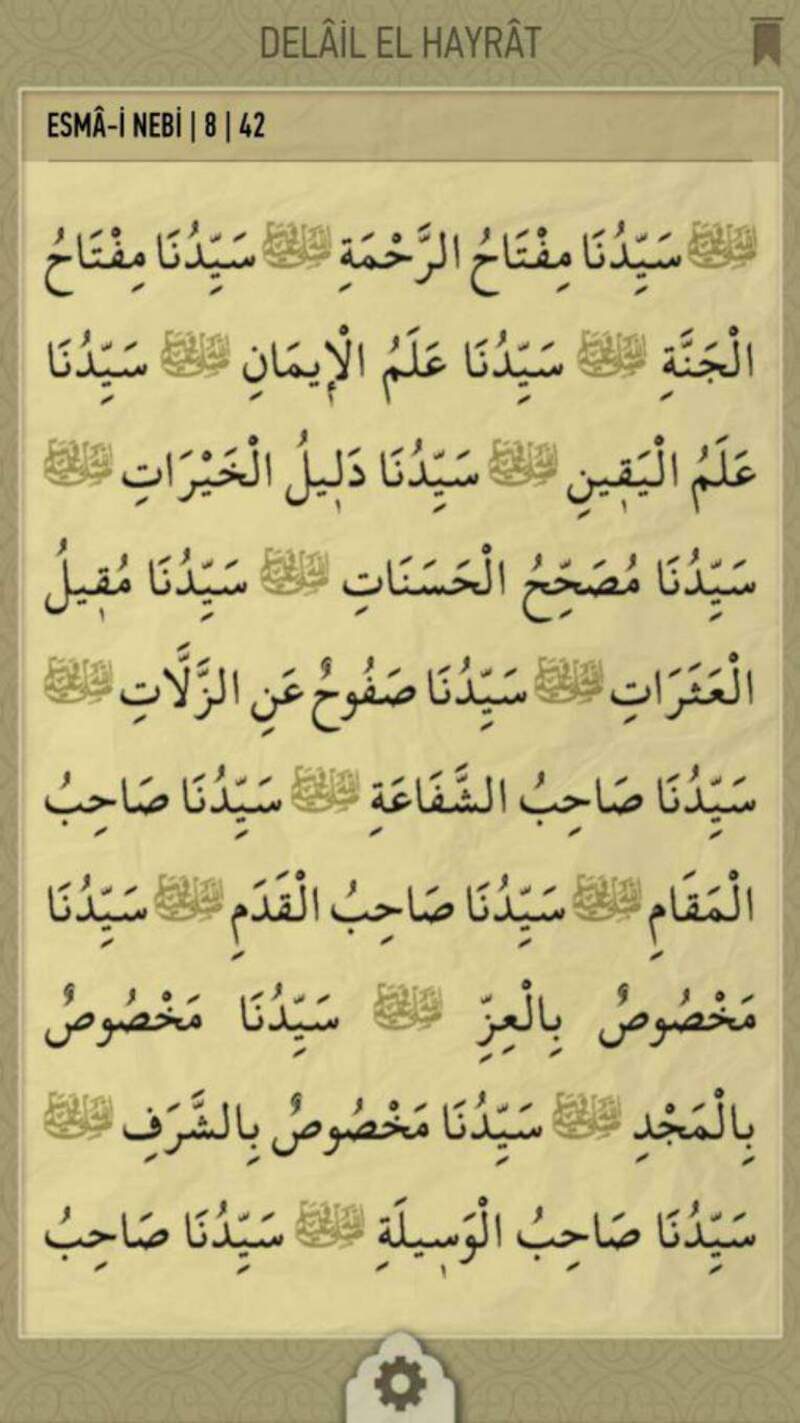 DELÂİL EL HAYRÂT
ESMÂ-İ NEBİ | 8 | 42
ﷺ سَيِّدُنَا مِفْتَاحُ الرَّحْمَةِ ﷺ سَيِّدُنَا مِفْتَاحُ
الْجَنَّةِ ﷺ سَيِّدُنَا عَلَمُ الْإِيمَانِ ﷺ سَيِّدُنَا
عَلَمُ الْيَقِينِ ﷺ سَيِّدُنَا دَلِيلُ الْخَيْرَاتِ ﷺ
سَيِّدُنَا مُصَحِّحُ الْحَسَنَاتِ ﷺ سَيِّدُنَا مُقِيلُ
الْعَثَرَاتِ ﷺ سَيِّدُنَا صَفُوحٌ عَنِ الزَّلَّاتِ ﷺ
سَيِّدُنَا صَاحِبُ الشَّفَاعَةِ ﷺ سَيِّدُنَا صَاحِبُ
الْمَقَامِ ﷺ سَيِّدُنَا صَاحِبُ الْقَدَمِ ﷺ سَيِّدُنَا
مَخْصُوصٌ بِالْعِزِّ ﷺ سَيِّدُنَا مَخْصُوصٌ
بِالْمَجْدِ ﷺ سَيِّدُنَا مَخْصُوصٌ بِالشَّرَفِ ﷺ
سَيِّدُنَا صَاحِبُ الْوَسِيلَةِ ﷺ سَيِّدُنَا صَاحِبُ